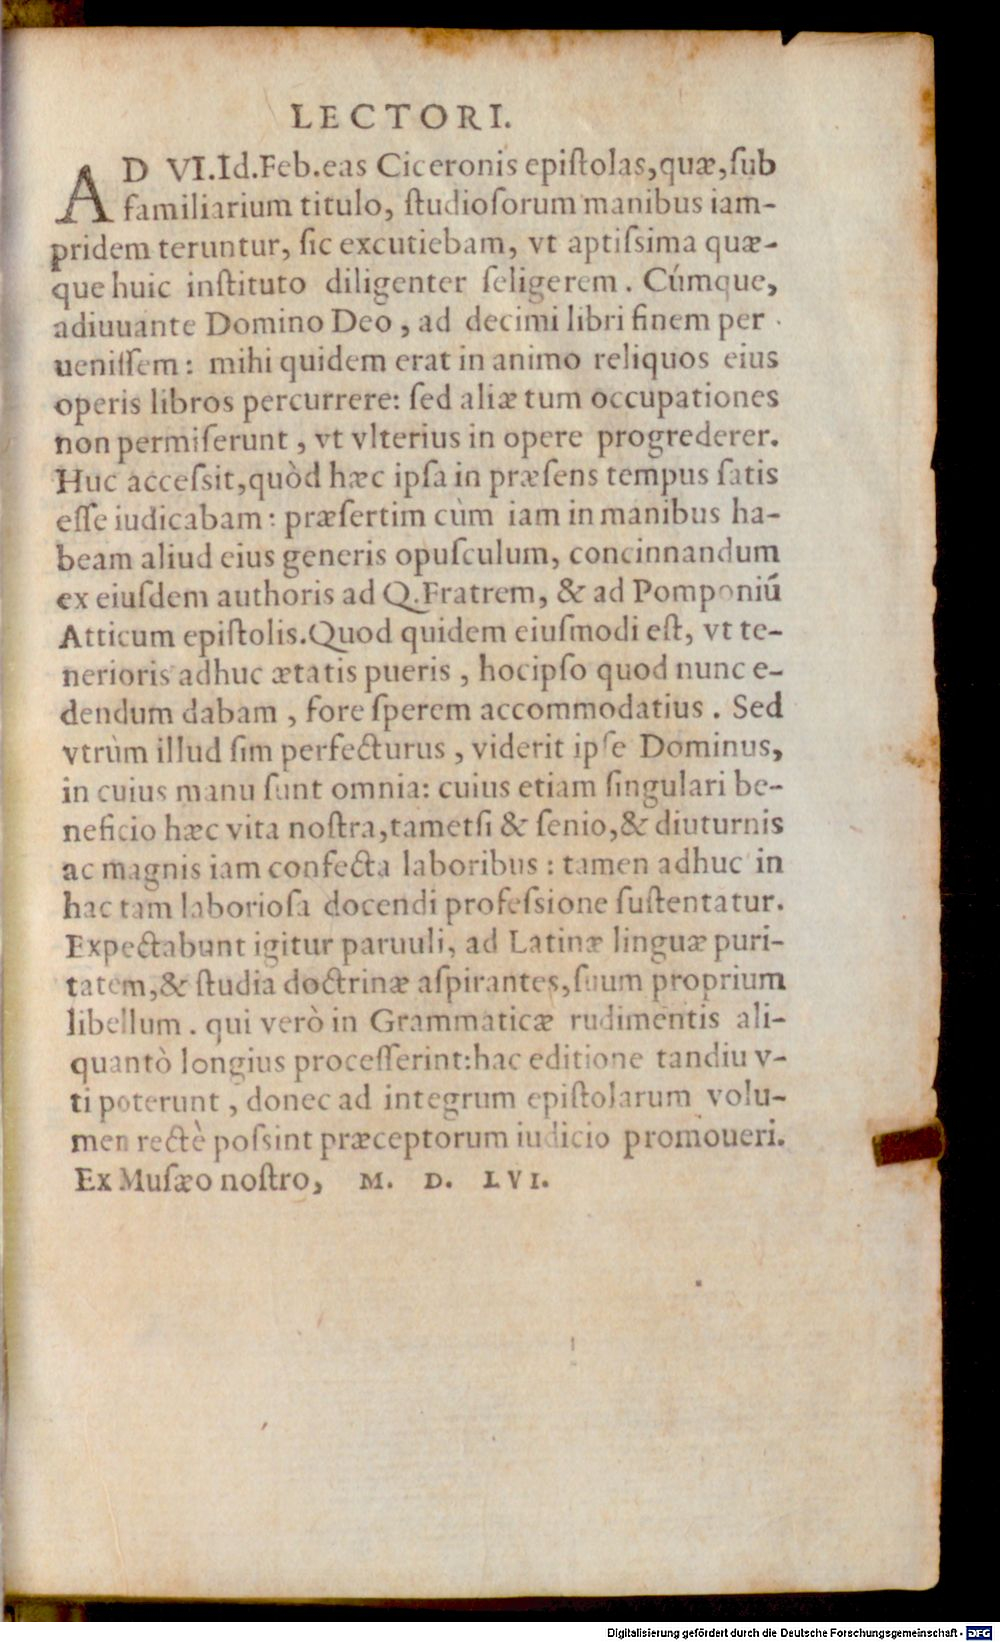 LECTORI.
AD VI.Id.Feb.eas Ciceronis epiſtolas,quæ,ſub
familiarium titulo, ſtudioſorum manibus iam-
pridem teruntur, ſic excutiebam, vt aptiſsima quæ-
que huic inſtituto diligenter ſeligerem. Cúmque,
adiuuante Domino Deo, ad decimi libri finem per-
ueniſſem: mihi quidem erat in animo reliquos eius
operis libros percurrere: ſed aliæ tum occupationes
non permiſerunt, vt vlterius in opere progrederer.
Huc acceſsit,quòd hæc ipſa in præſens tempus ſatis
eſſe iudicabam: præſertim cùm iam in manibus ha-
beam aliud eius generis opuſculum, concinnandum
ex eiuſdem authoris ad Q.Fratrem, & ad Pomponiū
Atticum epiſtolis.Quod quidem eiuſmodi eſt, vt te-
nerioris adhuc ætatis pueris, hocipſo quod nunc e-
dendum dabam, fore ſperem accommodatius. Sed
vtrùm illud ſim perfecturus, viderit ipſe Dominus,
in cuius manu ſunt omnia: cuius etiam ſingulari be-
neficio hæc vita noſtra,tametſi & ſenio,& diuturnis
ac magnis iam confecta laboribus: tamen adhuc in
hac tam laborioſa docendi profeſsione ſuſtentatur.
Expectabunt igitur paruuli, ad Latinæ linguæ puri-
tatem,& ſtudia doctrinæ aſpirantes,ſuum proprium
libellum. qui verò in Grammaticæ rudimentis ali-
quantò longius proceſſerint:hac editione tandiu v-
ti poterunt, donec ad integrum epiſtolarum volu-
men rectè poſsint præceptorum iudicio promoueri.
Ex Muſæo noſtro, M. D. LVI.
Digitalisierung gefördert durch die Deutsche Forschungsgemeinschaft - DFG